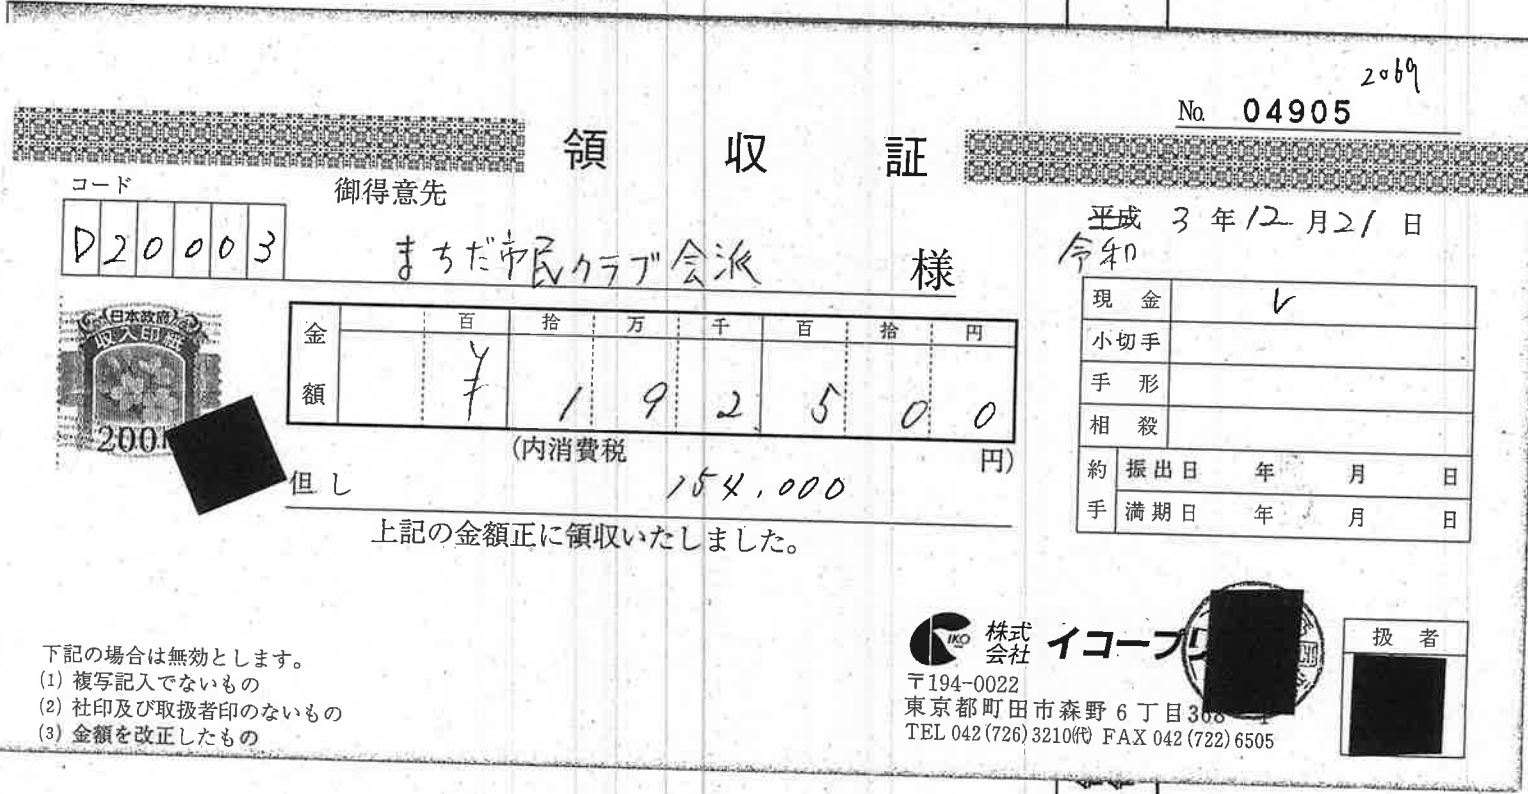 2069
No. 04905
領収証
コード
御得意先
D20003
まちだ市民クラブ会派 様
平成 3年12月21日
令和
日本政府
収入印紙
200
金額
百 拾 万 千 百 拾 円
¥192500
(内消費税 円)
但し 154,000
上記の金額正に領収いたしました。
現金 レ
小切手
手形
相殺
約手
振出日 年 月 日
満期日 年 月 日
下記の場合は無効とします。
(1) 複写記入でないもの
(2) 社印及び取扱者印のないもの
(3) 金額を改正したもの
IKO
株式会社 イコープリ
〒194-0022
東京都町田市森野6丁目368
TEL 042(726)3210㈹ FAX 042(722)6505
扱者